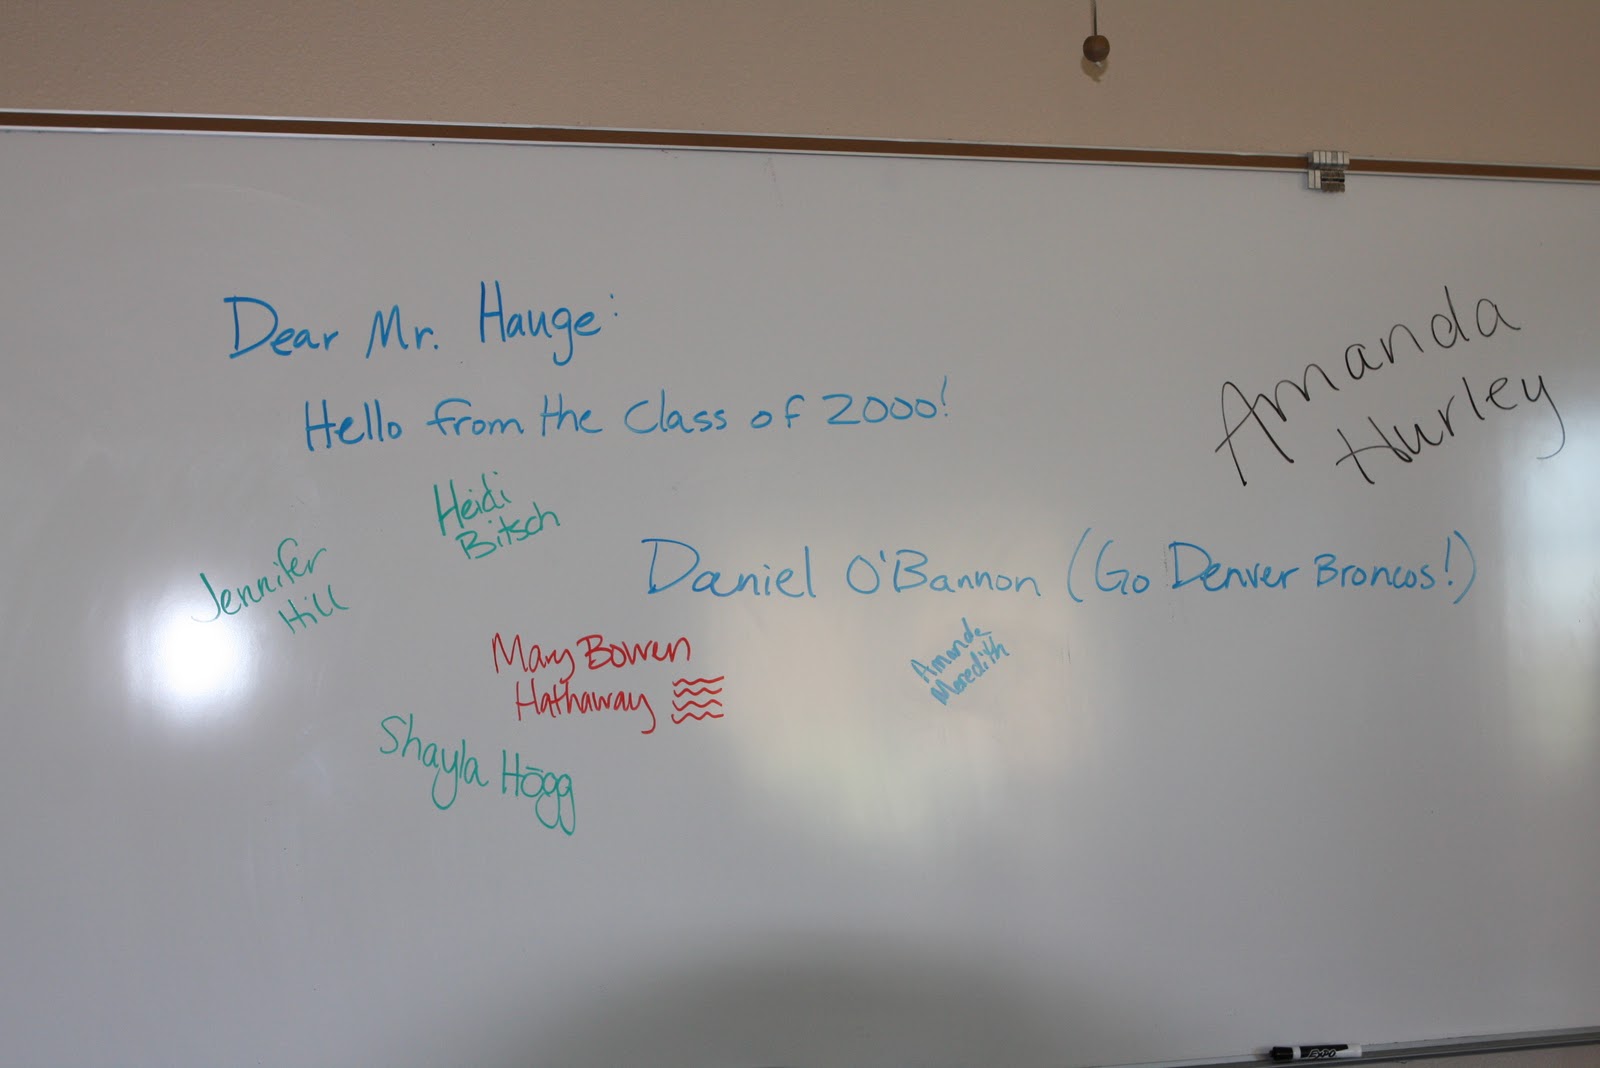 Dear Mr. Hauge:
Hello from the Class of 2000!
Amanda
Hurley
Heidi
Bitsch
Jennifer
Hill
Daniel O'Bannon (Go Denver Broncos!)
Mary Bowen
Hathaway
Amanda
Meredith
Shayla Hōgg
EXPO